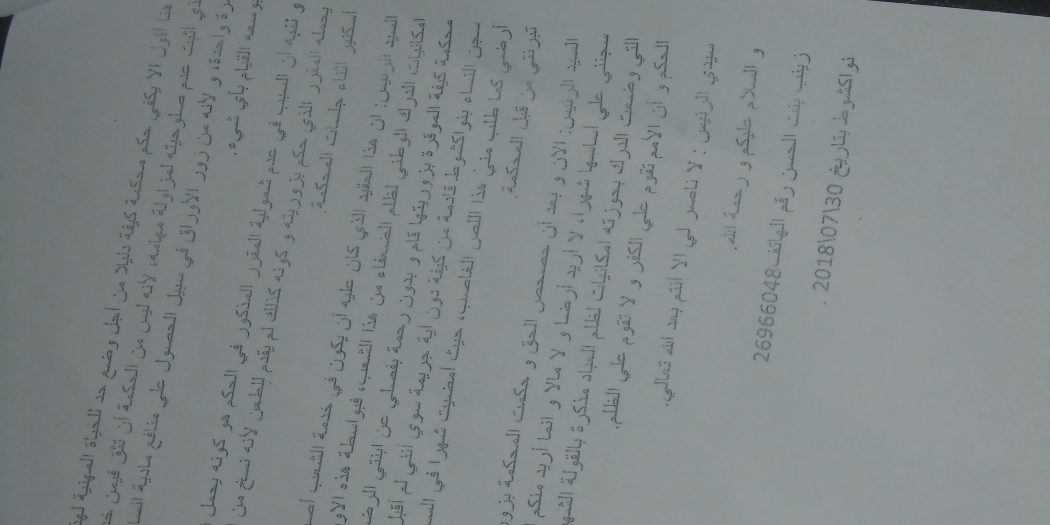 هنا أقول الا يكفي حكم محكمة كيفة دليلا من أجل وضع حد للحياة المهنية
أثبت عدم صلوحيته لمزاولة مهامه، لأنه ليس من الحكمة أن نثق فيمن
واحدة، و لأنه من زور الأوراق في سبيل الحصول علي منافع مادية
بوسعه القيام بأي شيء.
و ننبه ان السبب في عدم شمولية المقرر المذكور في الحكم هو كونه يحمل
يحمله المقرر الذي حكم بزوريته و كونه كذلك لم يقدم للطعن لأنه نسخ من
أثناء جلسات المحكمة.
السيد الرئيس: ان هذا العقيد الذي كان عليه أن يكون في خدمة الشعب
امكانيات الدرك الوطني لظلم الضعفاء من هذا الشعب، فبواسطة هذه
محكمة كيفة الموقرة بزوريتها قام و بدون رحمة بفصلي عن ابنتي
سجن النساء بنواكشوط قادمة من كيفة دون أية جريمة سوي أنني لم
أرضي كما طلب مني هذا اللص الغاصب، حيث أمضيت شهرا في
تبرئتي من قبل المحكمة.
السيد الرئيس: الآن و بعد أن حصحص الحق و حكمت المحكمة
سجنني علي أساسها شهرا، لا أريد أرضا و لا مالا و انما أريد منكم
التي وضعت الدرك بحوزته امكانيات لظلم العباد مذكرة بالقولة
الحكم و أن الأمم تقوم علي الكفر و لا تقوم علي الظلم.
سيدي الرئيس : لا ناصر لي الا أنتم بعد الله تعالي.
و السلام عليكم و رحمة الله.
زينب بنت الحسن رقم الهاتف26966048
نواكشوط بتاريخ 30\07\2018 .